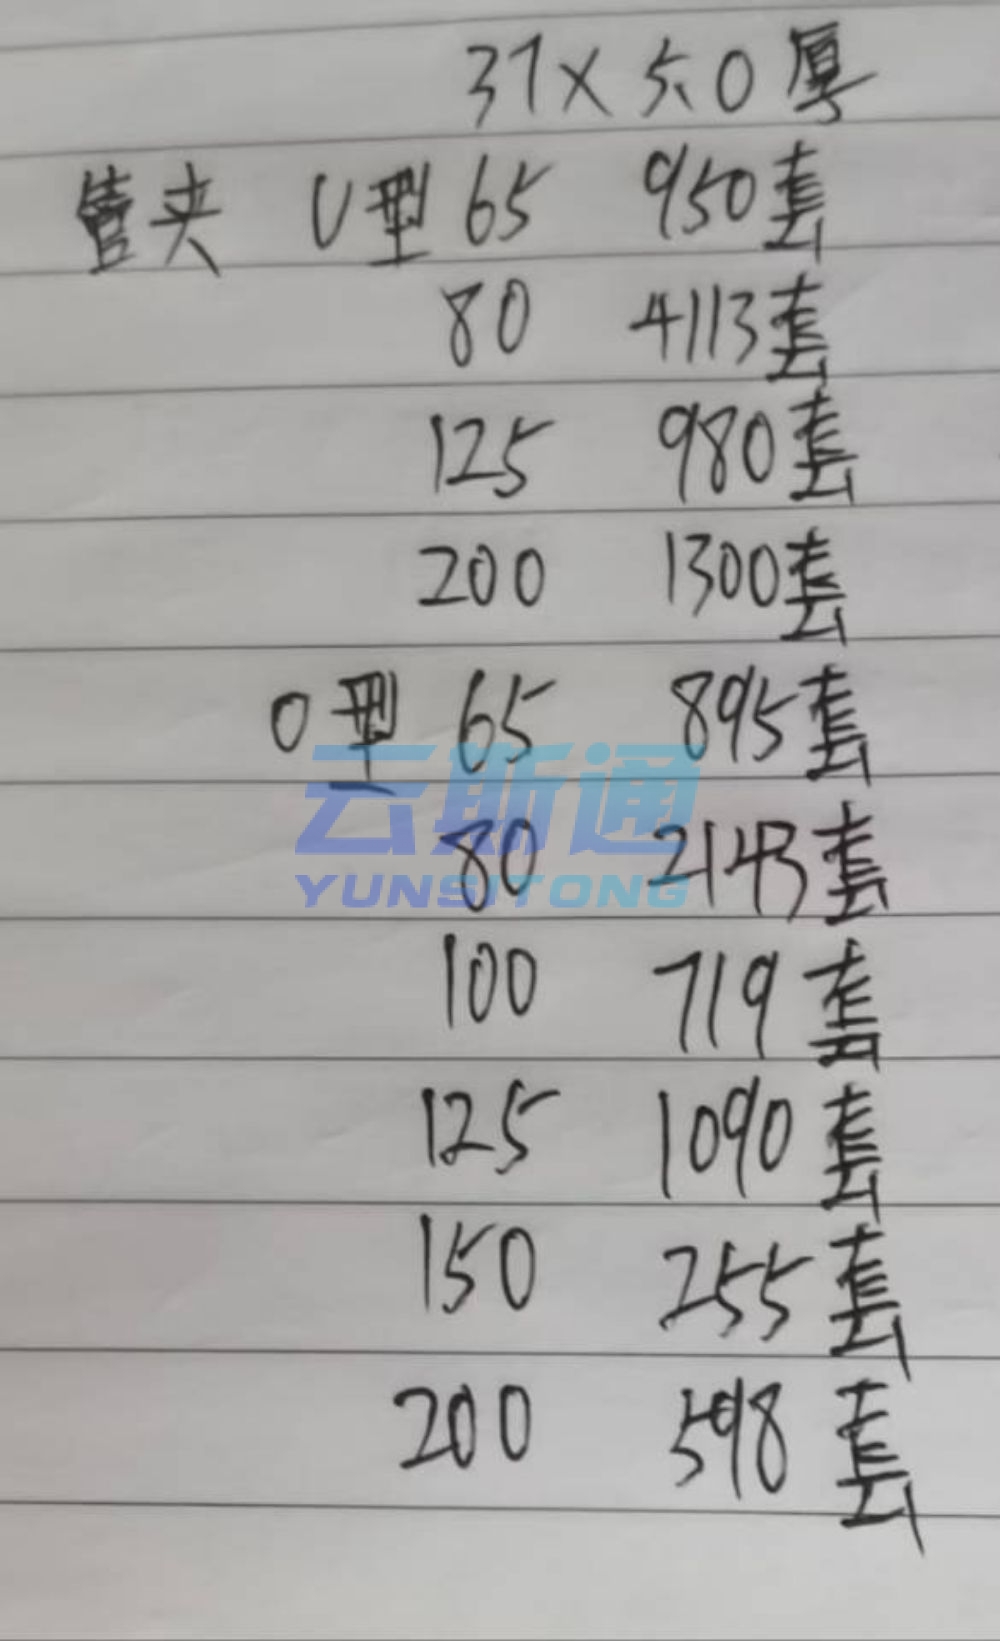 37×5.0厚
管夹 U型 65 950套
80 4113套
125 980套
200 1300套
O型 65 895套
云斯通
80 2143套
YUNSITONG
100 719套
125 1090套
150 255套
200 598套